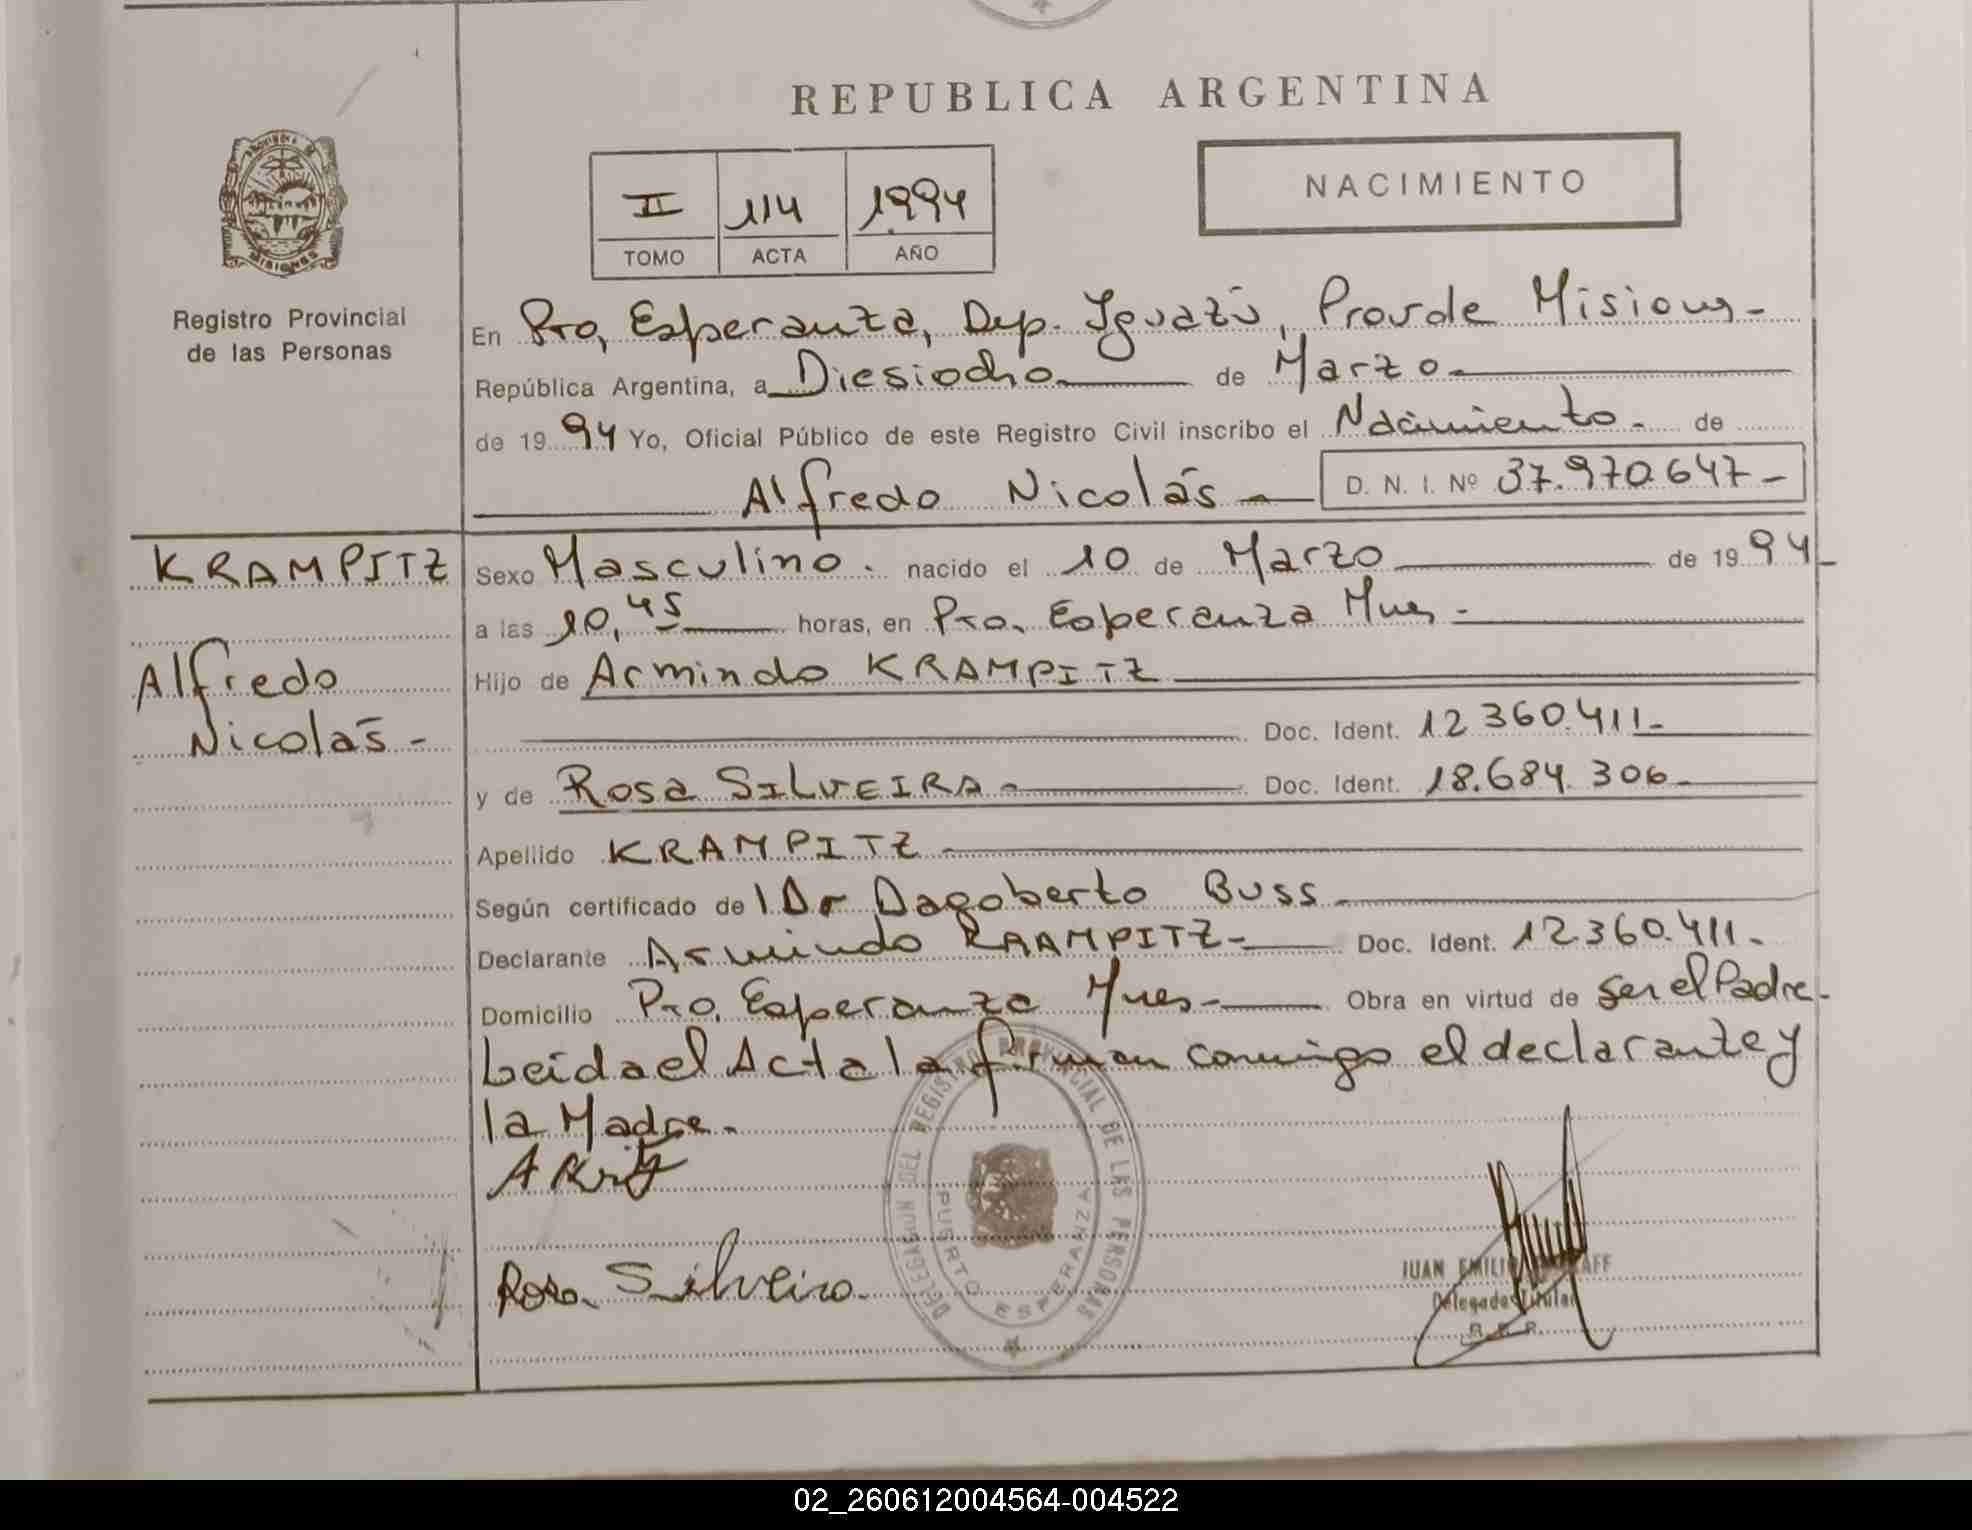 REPUBLICA ARGENTINA
II 114 1994
TOMO ACTA AÑO
NACIMIENTO
MISIONES
Registro Provincial
de las Personas
En Pto, Esperanza, Dep. Iguazú, Prov de Misiones-
República Argentina, a Diesiocho de Marzo
de 1994 Yo, Oficial Público de este Registro Civil inscribo el Nacimiento. de
Alfredo Nicolás D. N. I. Nº 37.970.647-
KRAMPITZ
Alfredo
Nicolás-
Sexo Masculino. nacido el 10 de Marzo de 1994
a las 10,45 horas, en Pto. Esperanza Mnes-
Hijo de Armindo KRAMPITZ
Doc. Ident. 12360.411-
y de Rosa SILVEIRA- Doc. Ident. 18.684.306-
Apellido KRAMPITZ
Según certificado del Dr Dagoberto Buss-
Declarante Armindo KRAMPITZ- Doc. Ident. 12360.411-
Domicilio Pto. Esperanza Mnes- Obra en virtud de ser el Padre-
Leida el Acta la firman conmigo el declarante y
la Madre-
Rosa Silveira
DELEGACION DEL REGISTRO PROVINCIAL DE LAS PERSONAS
PUERTO ESPERANZA
JUAN EMILIO
Delegado Titular
R. P. P.
02_260612004564-004522